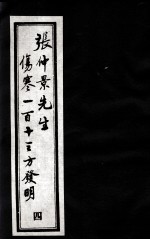 張仲景先生
傷寒一百十三方發明
四